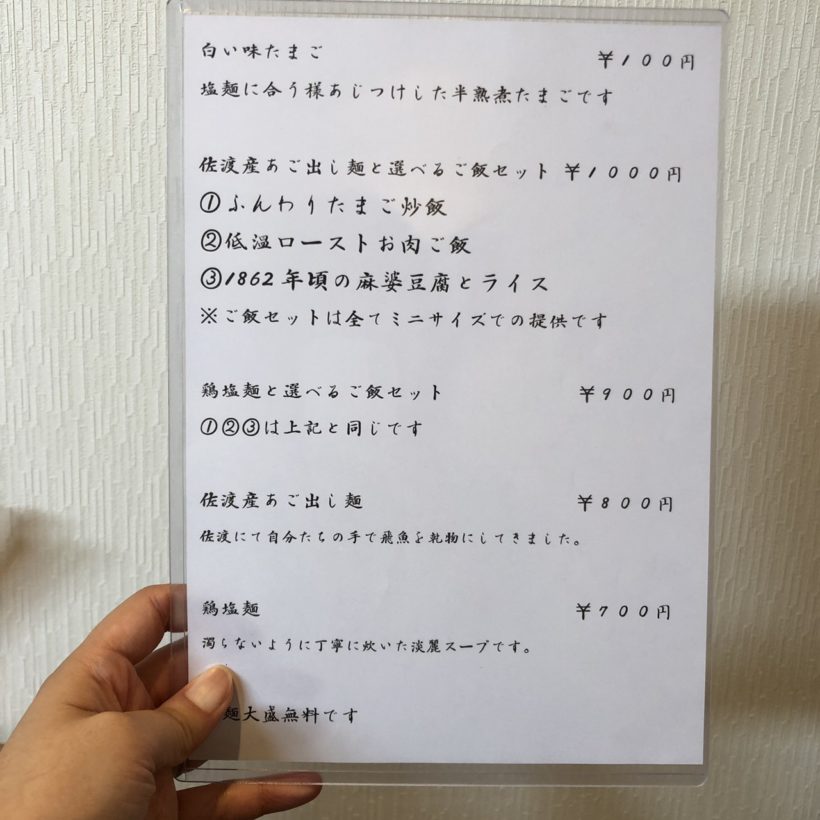 白い味たまご ￥１００円
塩麺に合う様あじつけした半熟煮たまごです
佐渡産あご出し麺と選べるご飯セット ￥１０００円
①ふんわりたまご炒飯
②低温ローストお肉ご飯
③1862年頃の麻婆豆腐とライス
※ご飯セットは全てミニサイズでの提供です
鶏塩麺と選べるご飯セット ￥９００円
①②③は上記と同じです
佐渡産あご出し麺 ￥８００円
佐渡にて自分たちの手で飛魚を乾物にしてきました。
鶏塩麺 ￥７００円
濁らないように丁寧に炊いた淡麗スープです。
麺大盛無料です